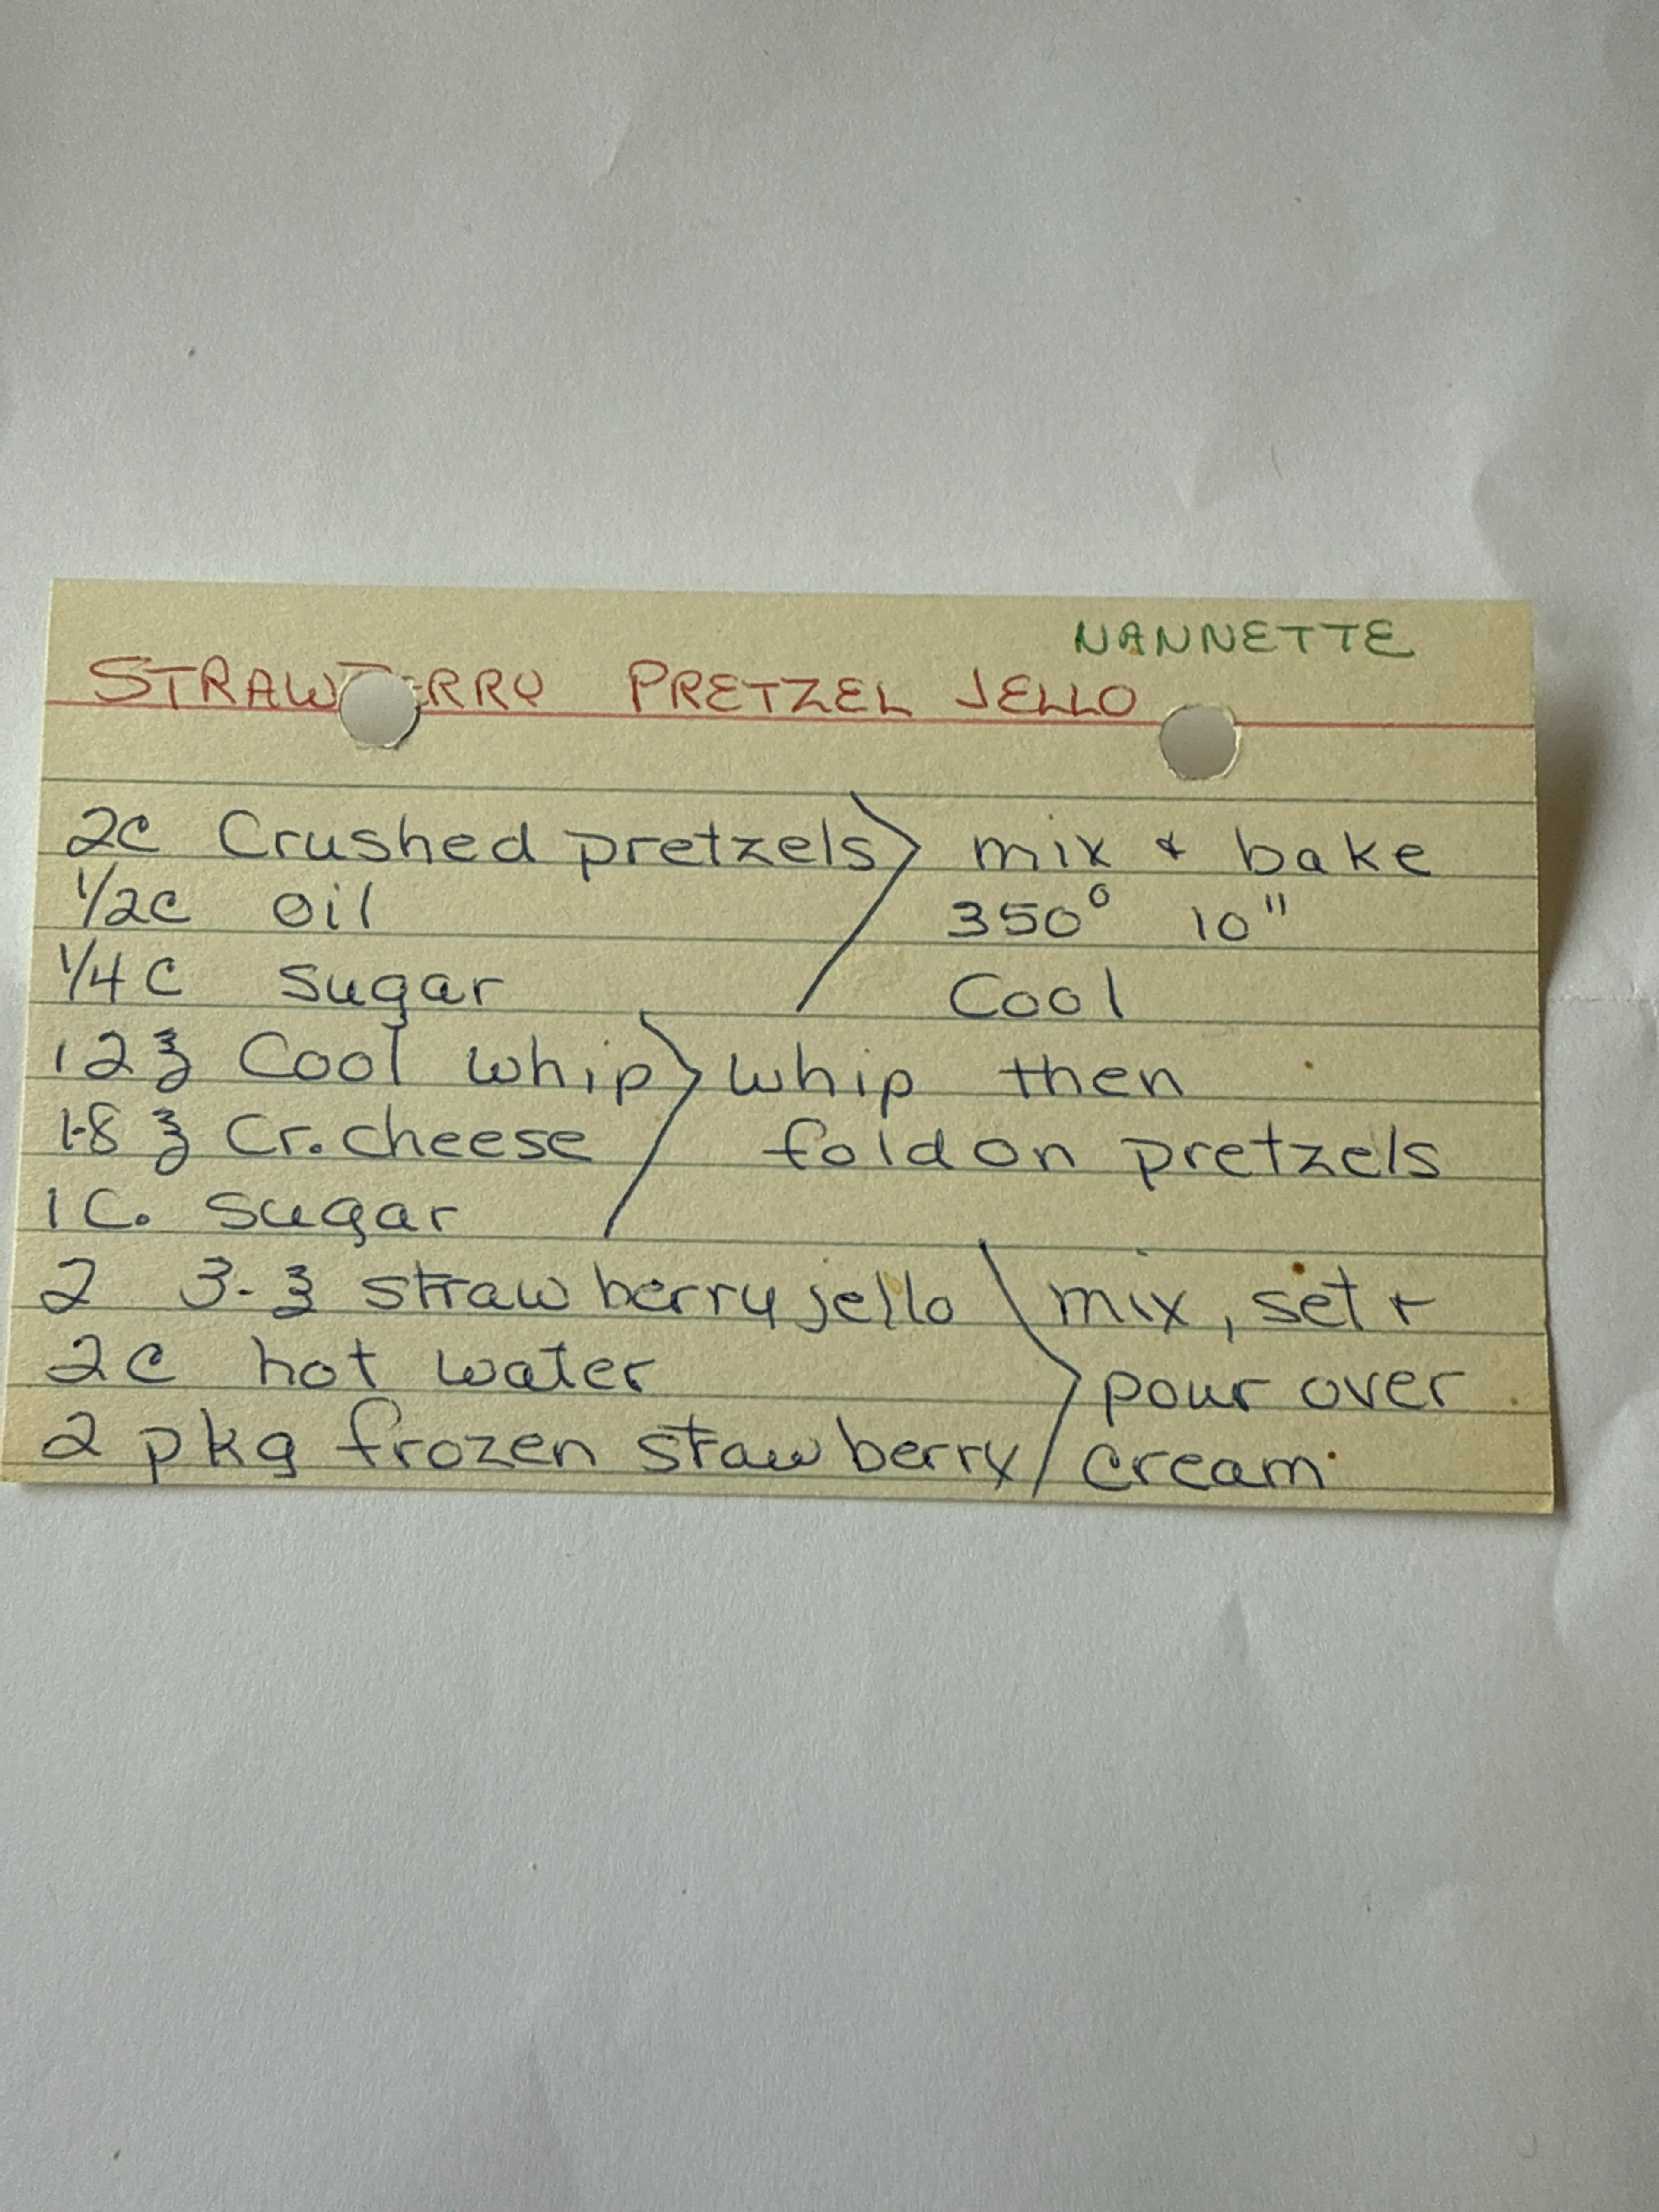 NANNETTE
STRAWBERRY PRETZEL JELLO
2c Crushed pretzels mix & bake
1/2c oil 350° 10"
1/4 c sugar Cool
12 ℥ Cool whip whip then
1-8 ℥ Cr. cheese fold on pretzels
1 C. sugar
2 3-℥ strawberry jello mix, set +
2c hot water pour over
2 pkg frozen stawberry cream